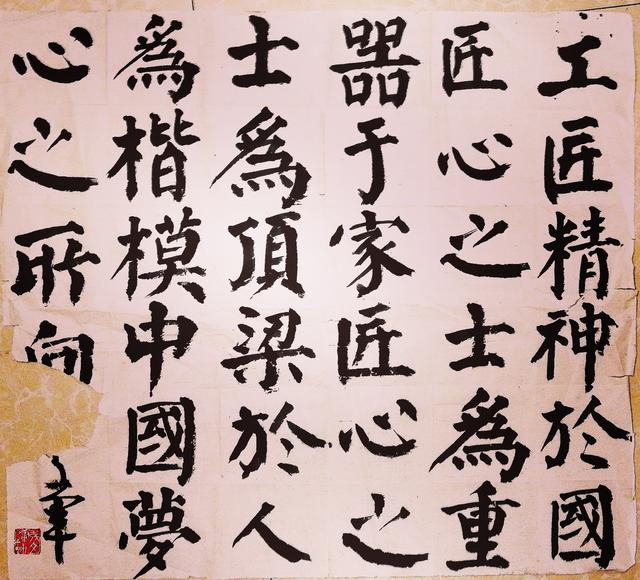 工匠精神於國
匠心之士為重
器于家匠心之
士為頂梁於人
為楷模中國夢
心之所向